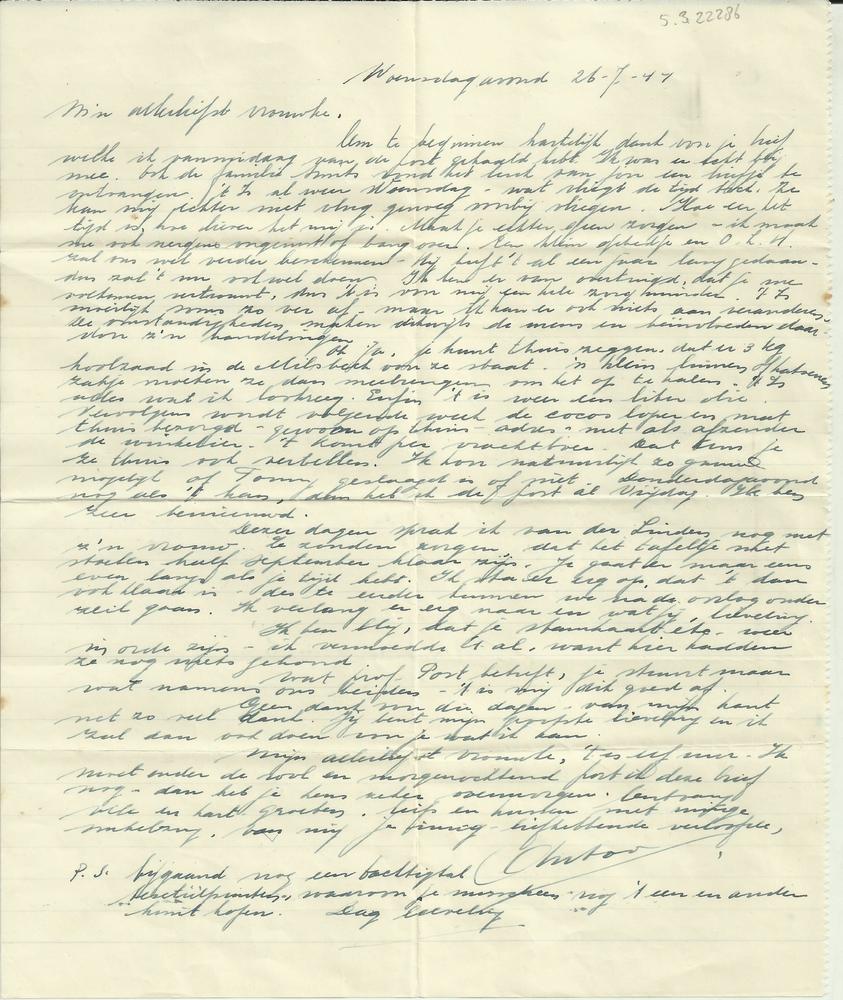 5.3.22286
Woensdagavond 26-7-44
M'n allerliefst vrouwke,
Om te beginnen hartelijk dank voor je brief
welke ik vanmiddag van de post gehaald heb. Ik was er echt blij
mee. Ook de familie vond het leuk van jou een briefje te
ontvangen. 't Is al weer Woensdag - wat vliegt de tijd toch. Ze
kan mij echter niet vlug genoeg voorbij vliegen. Hoe eer het
tijd is, hoe liever het mij is. Maak je echter geen zorgen - ik maak
me ook nergens ongerust of bang over. Een klein gebedje en O.L.H.
zal ons wel verder beschermen - Hij heeft 't al een jaar lang gedaan -
dus zal 't nu ook wel doen. Ik ben er van overtuigd, dat je me
volkomen vertrouwt, dus 't is voor mij een hele zorg minder. 't Is
moeilijk soms zo ver af - maar ik kan er ook niets aan veranderen.
De omstandigheden maken dikwijls de mens en beinvloeden daar-
door z'n handelingen.
Oh ja, je kunt thuis zeggen, dat er 3 kg
koolzaad in de Milsbeek voor ze staat. 'n klein linnen of katoenen
zakje moeten ze dan meebrengen om het op te halen. 't Is
alles wat ik loskreeg. Enfin 't is weer een liter olie.
Vervolgens wordt volgende week de cocos loper en mat
thuis bezorgd - gewoon op thuis - adres - met als afzender
de winkelier. 't komt per vrachtboot. Dat kun je
ze thuis ook vertellen. Ik hoor natuurlijk zo gauw
mogelijk of Tonny geslaagd is of niet. Donderdagavond
nog als 't kan, dan heb ik de post al Vrijdag. Ik ben
zeer benieuwd.
Dezer dagen sprak ik van der Linden nog met
z'n vrouw. Ze zouden zorgen, dat het tafeltje met
stoelen half September klaar zijn. Je gaat er maar eens
even langs als je tijd hebt. Ik sta er erg op, dat 't dan
ook klaar is - des te eerder kunnen we na de oorlog onder
zeil gaan. Ik verlang er erg naar en wat jij, lieveling.
Ik ben blij, dat je stamkaart etc. weer
in orde zijn - ik vermoedde 't al, want hier hadden
ze nog niets gehoord
Wat prof. Post betreft, je stuurt maar
wat namens ons beiden - 't is mij dik goed af.
Geen dank voor die dagen - van mijn kant
net zo veel dank. Jij bent mijn grootste lieveling en ik
zal dan ook doen voor je wat ik kan.
Mijn allerliefst vrouwke, 't is elf uur - Ik
moet onder de wol en morgenochtend post ik deze brief
nog - dan heb je hem zeker overmorgen. Ontvang
vele en hart. groeten, liefs en kussen met innige
omhelzing, van mij je innig-liefhebbende verloofde,
Anton
P.S. bijgaand nog een tachtigtal
textielpunten, waarvoor je misschien nog 't een en ander
kunt kopen. Dag lieveling